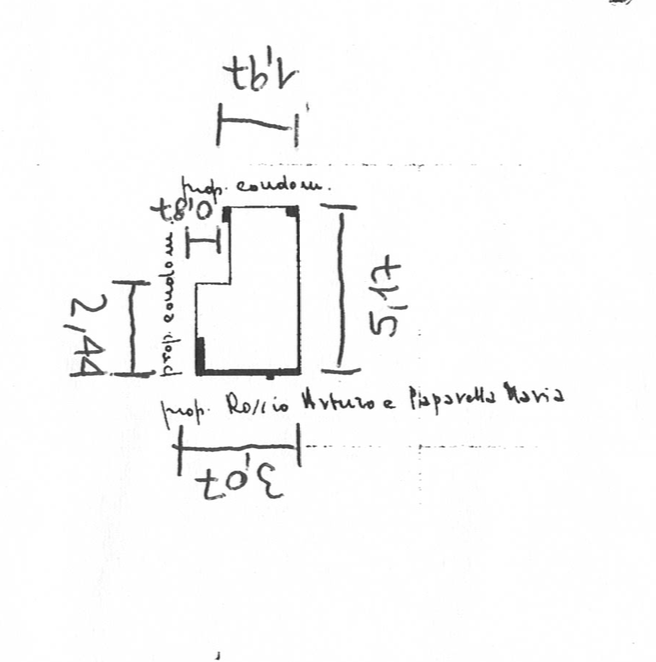 1,97
prop. condom.
0,87
prop. condom
2,44
5,17
prop. Roscio Arturo e Piaparella Maria
3,07